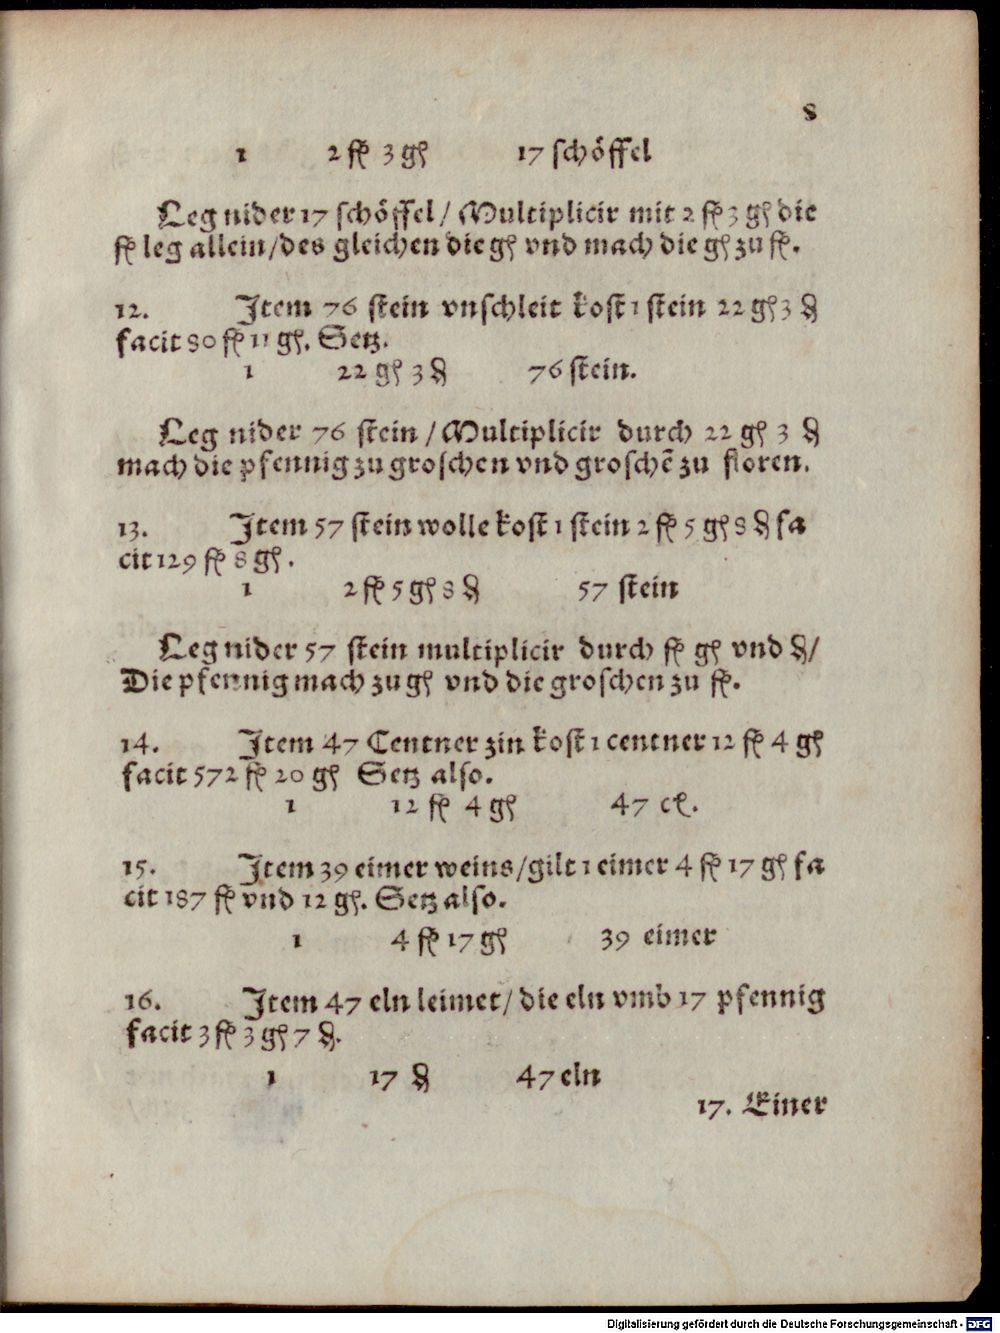 8
1 2 fl 3 gl 17 schöffel
Leg nider 17 schöffel / Multiplicir mit 2 fl 3 gl die
fl leg allein / des gleichen die gl vnd mach die gl zu fl.
12. Item 76 stein vnschleit kost 1 stein 22 gl 3 ₰
facit 80 fl 11 gl. Setz.
1 22 gl 3 ₰ 76 stein.
Leg nider 76 stein / Multiplicir durch 22 gl 3 ₰
mach die pfennig zu groschen vnd groschẽ zu floren.
13. Item 57 stein wolle kost 1 stein 2 fl 5 gl 8 ₰ fa
cit 129 fl 8 gl.
1 2 fl 5 gl 8 ₰ 57 stein
Leg nider 57 stein multiplicir durch fl gl vnd ₰/
Die pfennig mach zu gl vnd die groschen zu fl.
14. Item 47 Centner zin kost 1 centner 12 fl 4 gl
facit 572 fl 20 gl Setz also.
1 12 fl 4 gl 47 cl.
15. Item 39 eimer weins / gilt 1 eimer 4 fl 17 gl fa
cit 187 fl vnd 12 gl. Setz also.
1 4 fl 17 gl 39 eimer
16. Item 47 eln leimet / die eln vmb 17 pfennig
facit 3 fl 3 gl 7 ₰.
1 17 ₰ 47 eln
17. Einer
Digitalisierung gefördert durch die Deutsche Forschungsgemeinschaft - DFG